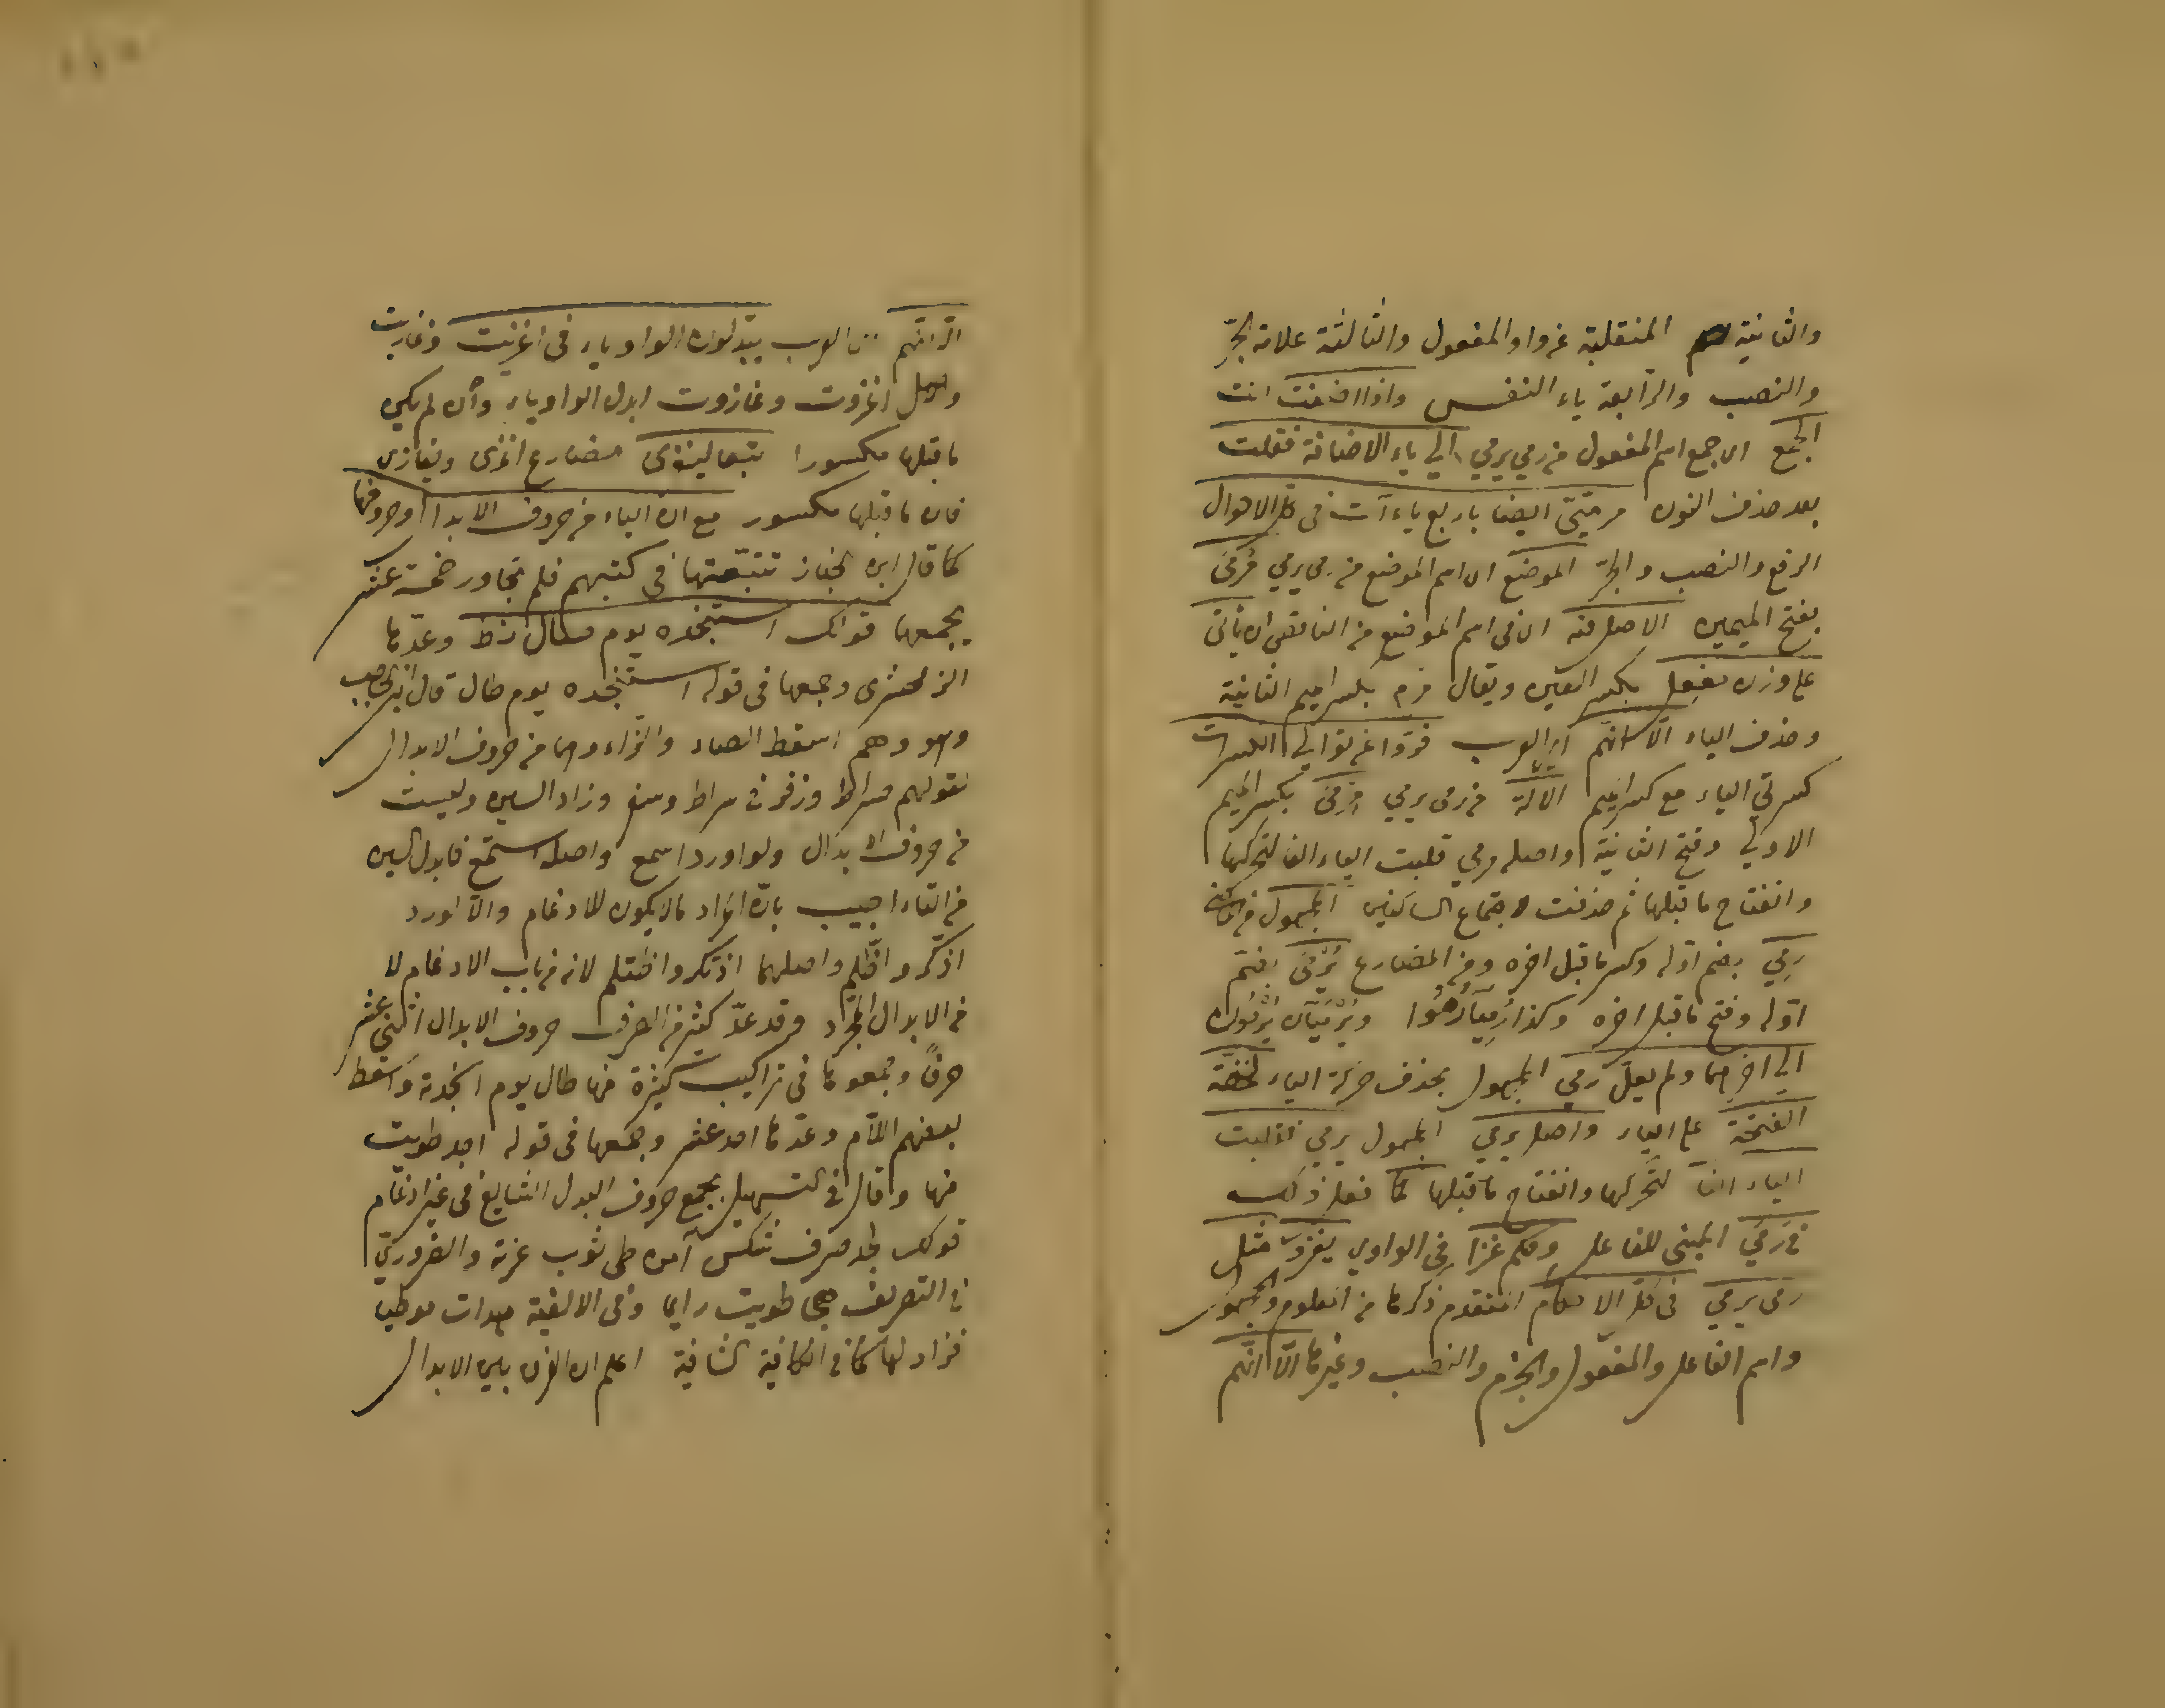 والثانية المنقلبة عن واو المفعول والثالثة علامة الجرّ
والنصب والرابعة ياء النفس واذا اضفت انت
الجمع اى جمع اسم المفعول من رمى يرمي الي ياء الاضافة فقلت
بعد حذف النون مرميّيّ ايضا باربع ياءآت فى كل الاحوال
الرفع والنصب والجرّ الموضع اى اسم الموضع من رمى يرمي مَرمىً
بفتح الميمين الاصل فيه اى فى اسم الموضع من الناقص ان يأتى
على وزن مفعِل بكسر العين ويقال مرم بكسر الميم الثانية
وحذف الياء الّا انهم اى العرب فرّوا عن توالي الكسرات
كسرتي الياء مع كسر الميم الآلة من رمى يرمي مِرمىً بكسر الميم
الاولي وفتح الثانية واصله مرمي قلبت الياء الفا لتحركها
وانفتاح ما قبلها ثم حذفت لاجتماع الساكنين المجهول من الماضي
رُمِي بضم اوّله وكسر ما قبل اخره ومن المضارع يُرْمَى بضم
اوّله وفتح ما قبل اخره وكذا رُمِيَا رُمُوا ويُرْمَيَان يُرْمَون
الي اخرهما ولم يعلّ رُمي المجهول بحذف حركة الياء لخفّة
الفتحة على الياء واصل يرمي المجهول يرمي فقلبت
الياء الفاً لتحركها وانفتاح ما قبلها كما فعل ذلك
فى رَمَي المبنى للفاعل وحكم غزا فى الواوي يغزو مثل
رمى يرمي فى كل الاحكام المتقدم ذكرها من المعلوم والمجهول
واسم الفاعل والمفعول والجزم والنصب وغيرها الّا انّهم
الّا انّهم اى العرب يبدلون الواو ياء فى اغزيت وغازيت
واصل اغزوت وغازوت ابدل الواو ياء وان لم يكن
ما قبلها مكسورا تبعا ليغزى مضارع اغزى ويغازى
فان ما قبلها مكسور مع ان الياء من حروف الابدال وحروفها
كما قال ابن الخباز تتبّعتها فى كتبهم فلم تجاوز خمسة عشر
يجمعها قولك استنجده يوم صال زط وعدّها
الزمخشرى وجمعها فى قوله استنجده يوم طال قال ابن الحاجب
وهو وهم اسقط الصاد والزّاء وهما من حروف الابدال
لقولهم صراط وزقر فى سراط وسقر وزاد السين وليست
من حروف الابدال ولو اورد اسمع واصله استمع فابدل السين
من التاء اجيب بانّ المراد ما لا يكون للادغام والّا لورد
اذّكر واظّلم واصلهما اذتكر واظتلم لانه من باب الادغام لا
من الابدال المجرّد وقد عدّ كثير من الصرف حروف الابدال اثنى عشر
حرفاً وجمعوها فى تراكيب كثيرة منها طال يوم انجدته واسقط
بعضهم اللّام وعدّها احد عشر وجمعها فى قوله اجد طويت
منها وقال فى التسهيل يجمع حروف البدل الشايع فى غير ادغام
قولك لجد صرف شكس آمن طى ثوب عزته والضروريّ
فى التصريف هجا طويت دايما وفى الالفية هدات موطيا
فزاد لهاء كما فى الكافية الشافية اعلم ان الفرق بين الابدال